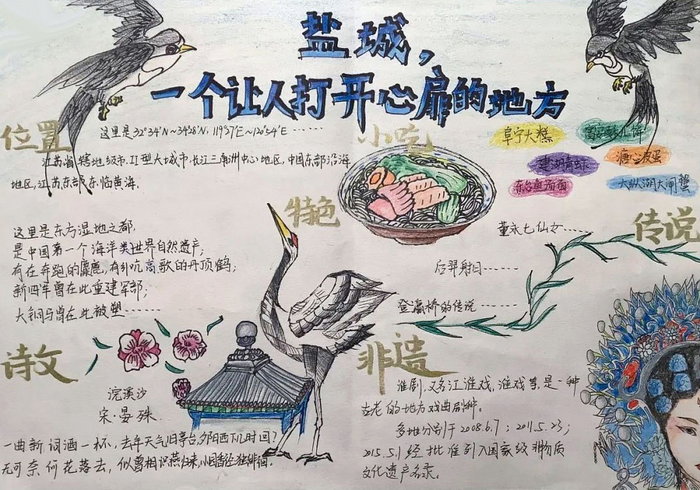 盐城,
一个让人打开心扉的地方
位置
这里是32°34′N~34°28′N, 119°27′E~120°54′E ······
江苏省辖地级市,II型大城市,长江三角洲中心地区,中国东部沿海
地区,江苏东部,东临黄海.
小吃
阜宁大糕
东台鱼汤面
大纵湖大闸蟹
特色
这里是东方湿地之都,
是中国第一个海洋类世界自然遗产;
有在奔跑的麋鹿,有引吭高歌的丹顶鹤;
新四军曾在此重建军部;
大铜马曾在此被塑······
传说
董永七仙女······
后羿射日······
登瀛桥的传说······
诗文
浣溪沙
宋晏殊
一曲新词酒一杯,去年天气旧亭台,夕阳西下几时回?
无可奈何花落去,似曾相识燕归来,小园香径独徘徊.
非遗
淮剧,又名江淮戏,淮戏等是一种
古老的地方戏曲剧种.
多批分别于2008.6.7;2011.5.23;
2015.5.1经批准列入国家级非物质
文化遗产名录.